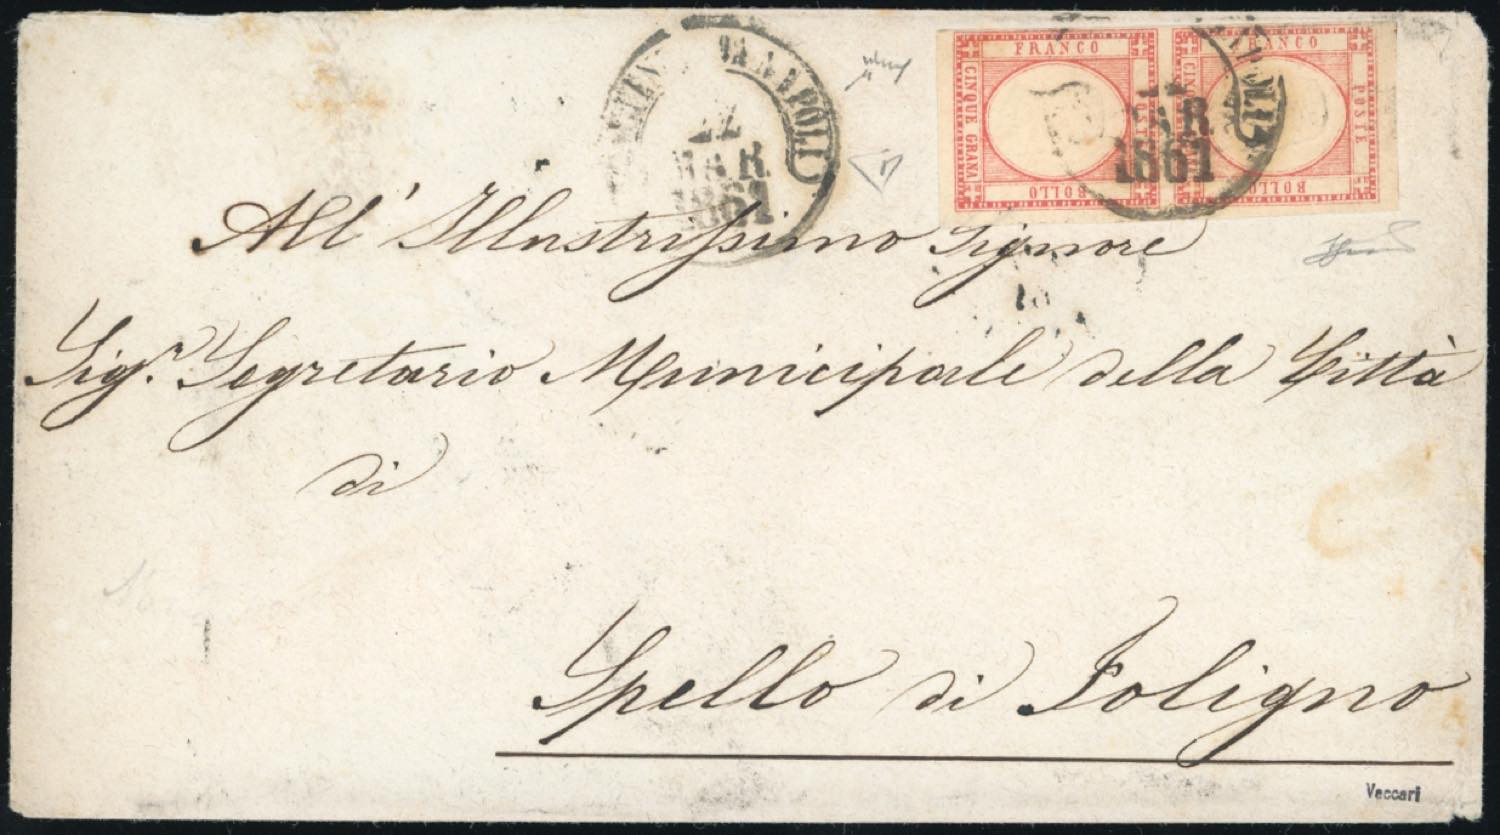 NAPOLI
22
MAR.
1861
FRANCO
CINQUE GRANA
POSTE
BOLLO
FRANCO
CINQUE
POSTE
BOLLO
MAR
1861
All' Illustrissimo Signore
Sig.r Segretario Municipale della Città
di
Spello di Foligno
Vaccari